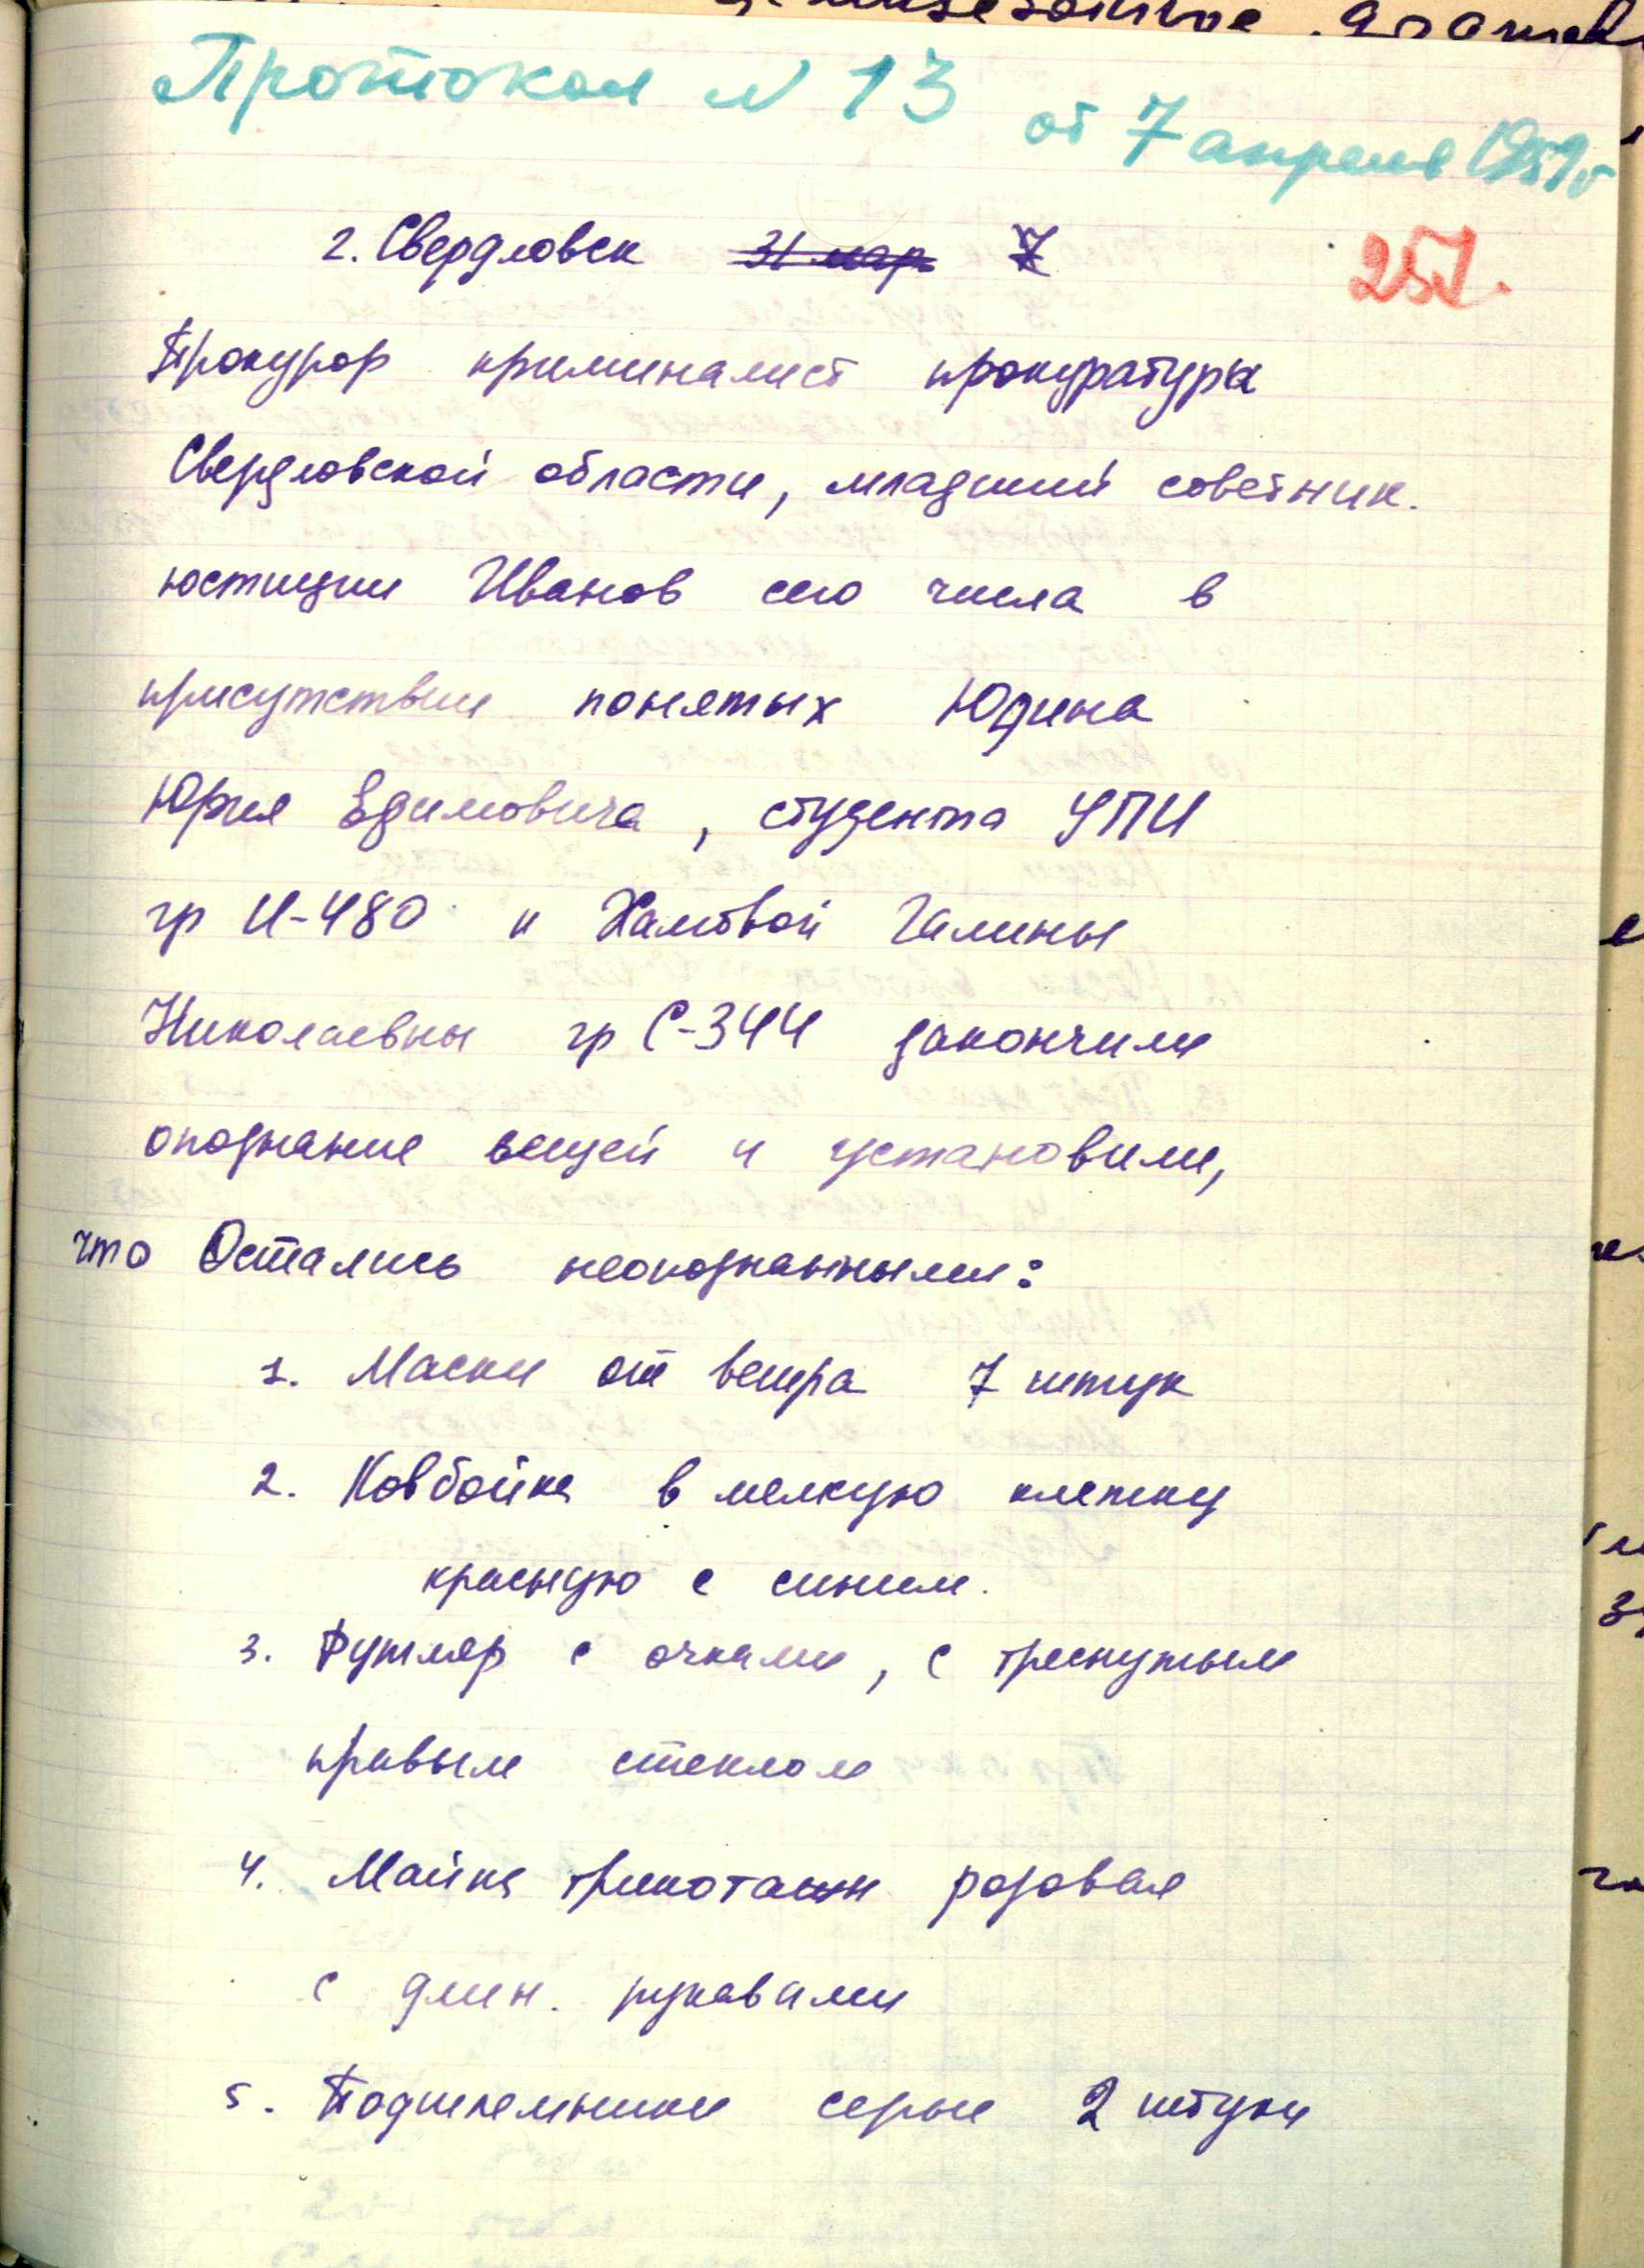 Протокол N 13 от 7 апреля 1959 г
г. Свердловск 31 мар 7
257.
Прокурор криминалист прокуратуры
Свердловской области, младший советник.
юстиции Иванов сего числа в
присутствии понятых Юдина
Юрия Ефимовича, студента УПИ
гр И-480 и Хамовой Галины
Николаевны гр С-344 закончили
опознание вещей и установили,
что Остались неопознанными:
1. Маски от ветра 7 штук
2. Ковбойка в мелкую клетку
красную с синим.
3. Футляр с очками, с треснутым
правым стеклом
4. Майка трикотажн розовая
с длин. рукавами
5. Подшлемники серые 2 штуки